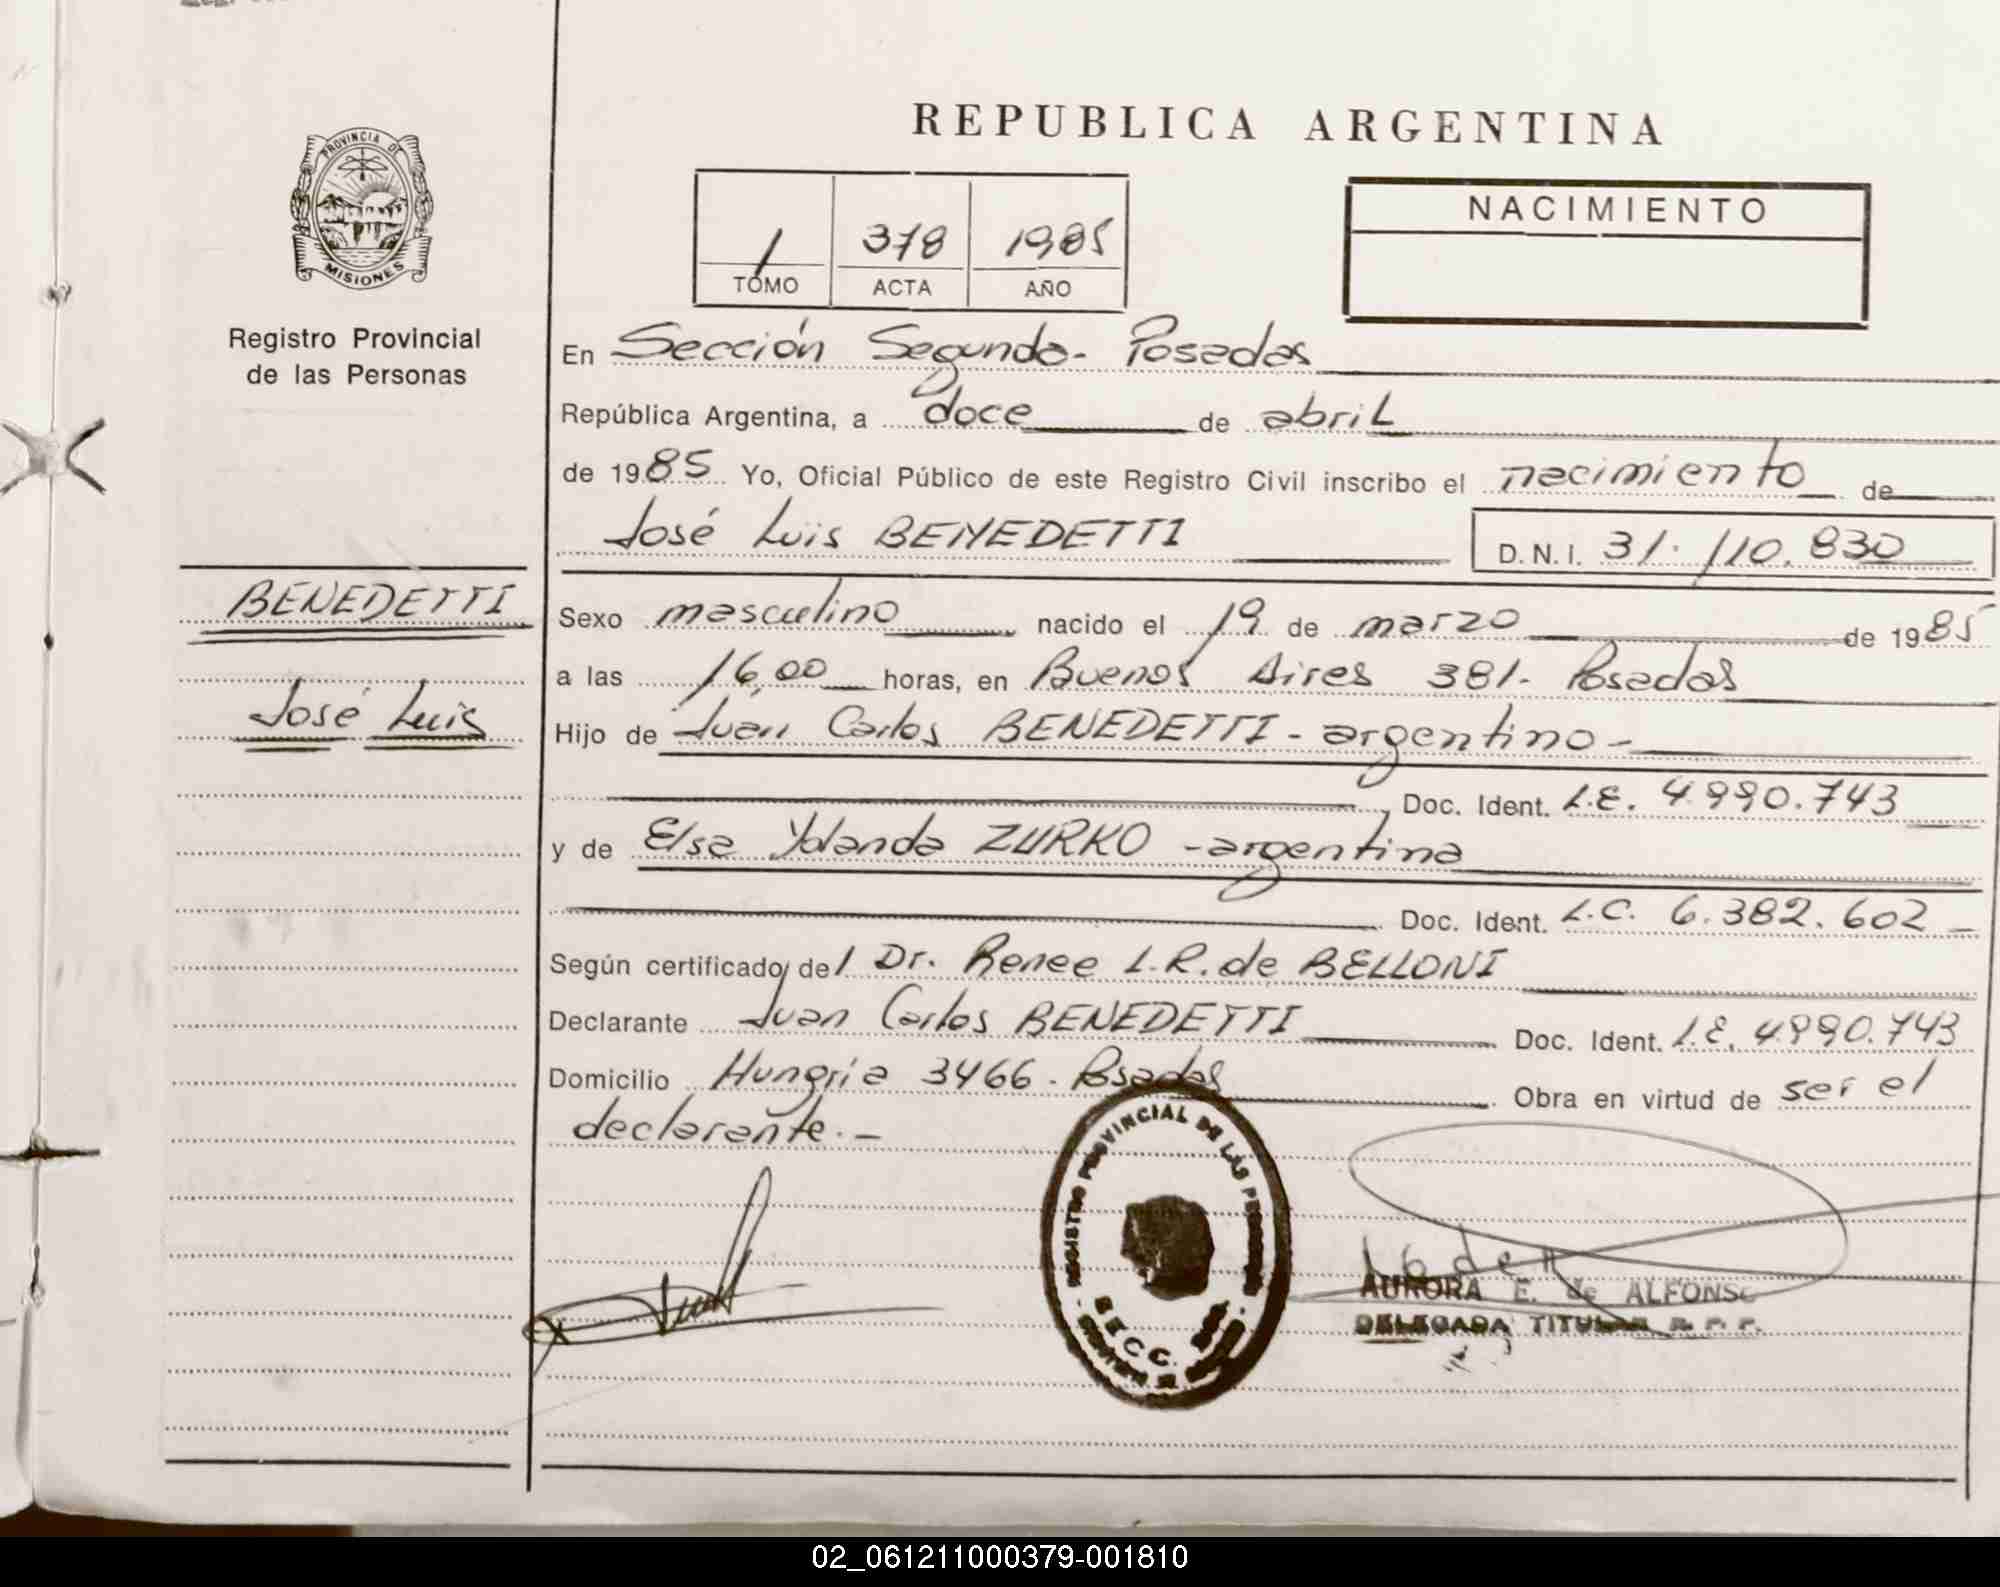 REPUBLICA ARGENTINA
PROVINCIA DE
MISIONES
Registro Provincial
de las Personas
1 378 1985
TOMO ACTA AÑO
NACIMIENTO
En Sección Segunda- Posadas
República Argentina, a doce de abril
de 1985 Yo, Oficial Público de este Registro Civil inscribo el nacimiento de
José Luis BENEDETTI D.N.I. 31.110.830
BENEDETTI
José Luis
Sexo masculino nacido el 19 de marzo de 1985
a las 16,00 horas, en Buenos Aires 381- Posadas
Hijo de Juan Carlos BENEDETTI - argentino -
Doc. Ident. L.E. 4.990.743
y de Elsa Yolanda ZURKO - argentina
Doc. Ident. L.C. 6.382.602
Según certificado del Dr. Renee L.R. de BELLONI
Declarante Juan Carlos BENEDETTI Doc. Ident. L.E. 4.990.743
Domicilio Hungria 3466. Posadas Obra en virtud de ser el
declarante.-
REGISTRO PROVINCIAL DE LAS PERSONAS
SECC.
AURORA E. de ALFONSO
DELEGADA TITULAR R. P. P.
02_061211000379-001810